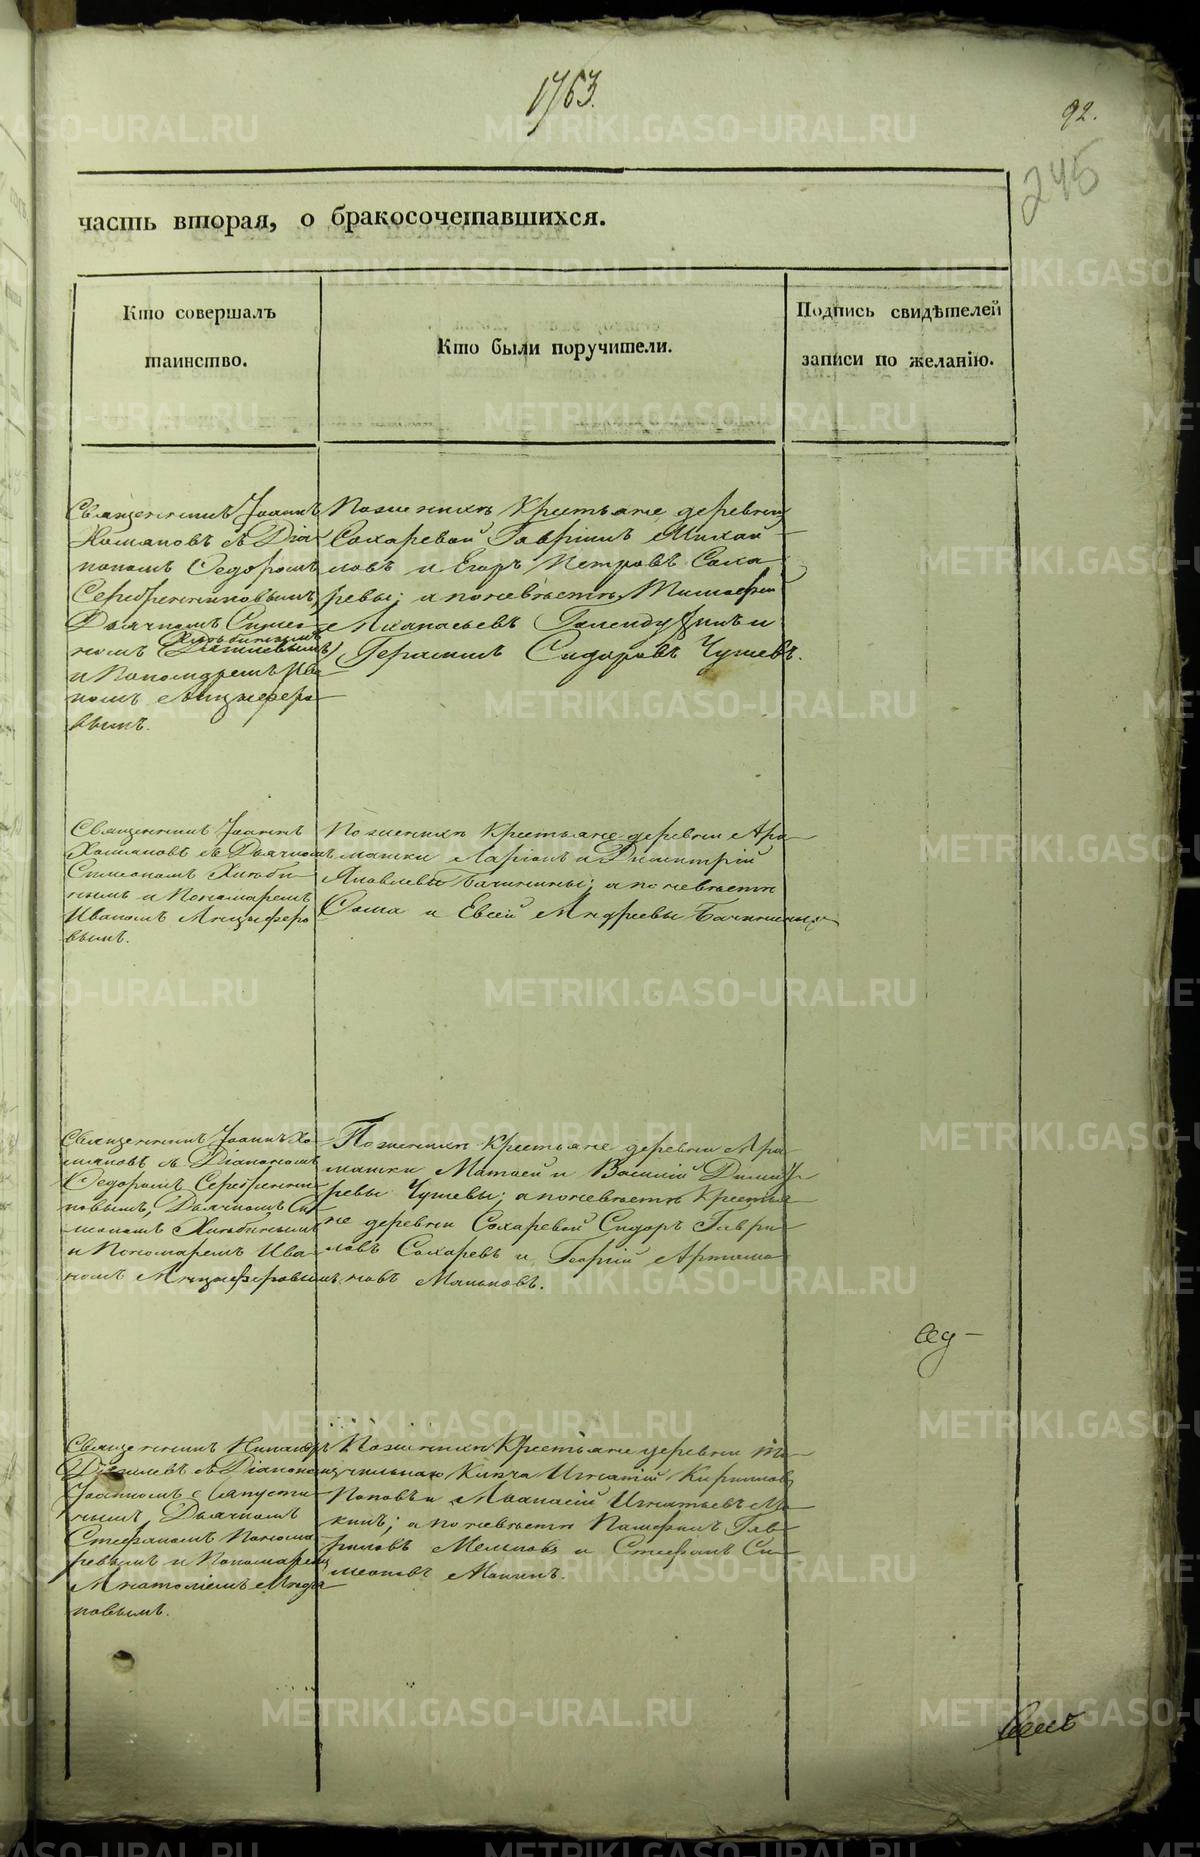 1763.
92.
245
часть вторая, о бракосочетавшихся.
Кто совершалъ
таинство.
Кто были поручители.
Подпись свидѣтелей
записи по желанію.
Священникъ Іоаннъ
Хомяковъ съ Діа-
кономъ Ѳедоромъ
Серебренниковымъ,
Дьячкомъ Симео-
номъ Хлыбинымъ
и Пономаремъ Ива
номъ Анцыферо
вымъ.
По женихѣ Крестьяне деревни
Сахаревой Гавріилъ Михай-
ловъ и Егоръ Петровъ Саха
ревы; а по невѣстѣ Тимофей
Афанасьевъ и
Герасимъ Сидоровъ Чушевъ.
Священникъ Іоаннъ
Хомяковъ съ Дьячкомъ
Симеономъ Хлыби
нымъ и Пономаремъ
Иваномъ Анцыферо
вымъ.
По женихѣ Крестьяне деревни Ара-
машки Ларіонъ и Димитрій
Яковлевы Бачинины; а по невѣстѣ
Ѳома и Евсей Андреевы Бачинины
Священникъ Іоаннъ Хо
мяковъ съ Діакономъ
Ѳедоромъ Серебренни
ковымъ, Дьячкомъ Си
меономъ Хлыбинымъ
и Пономаремъ Ива
номъ Анцыферовымъ.
По женихѣ Крестьяне деревни Ара
машки Матвей и Василій
Чушевы; а по невѣстѣ Крестья
не деревни Сахаревой Сидоръ Гаври
ловъ Сахаревъ и Георгій Артамо
новъ Маньковъ.
Священникъ Никаноръ
съ Діакономъ
Іоанномъ
Дьячкомъ
Стефаномъ Понома
ревымъ и Пономаремъ
Анатоліемъ
По женихѣ Крестьяне деревни
Ключа Игнатій Кирилловъ
Поповъ и Афанасій Игнатьевъ
а по невѣстѣ Памфилъ Гав-
риловъ и Стефанъ Си-
меоновъ
METRIKI.GASO-URAL.RU